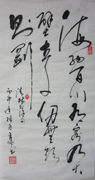 海納百川有容乃大
壁立千仞無欲
則剛